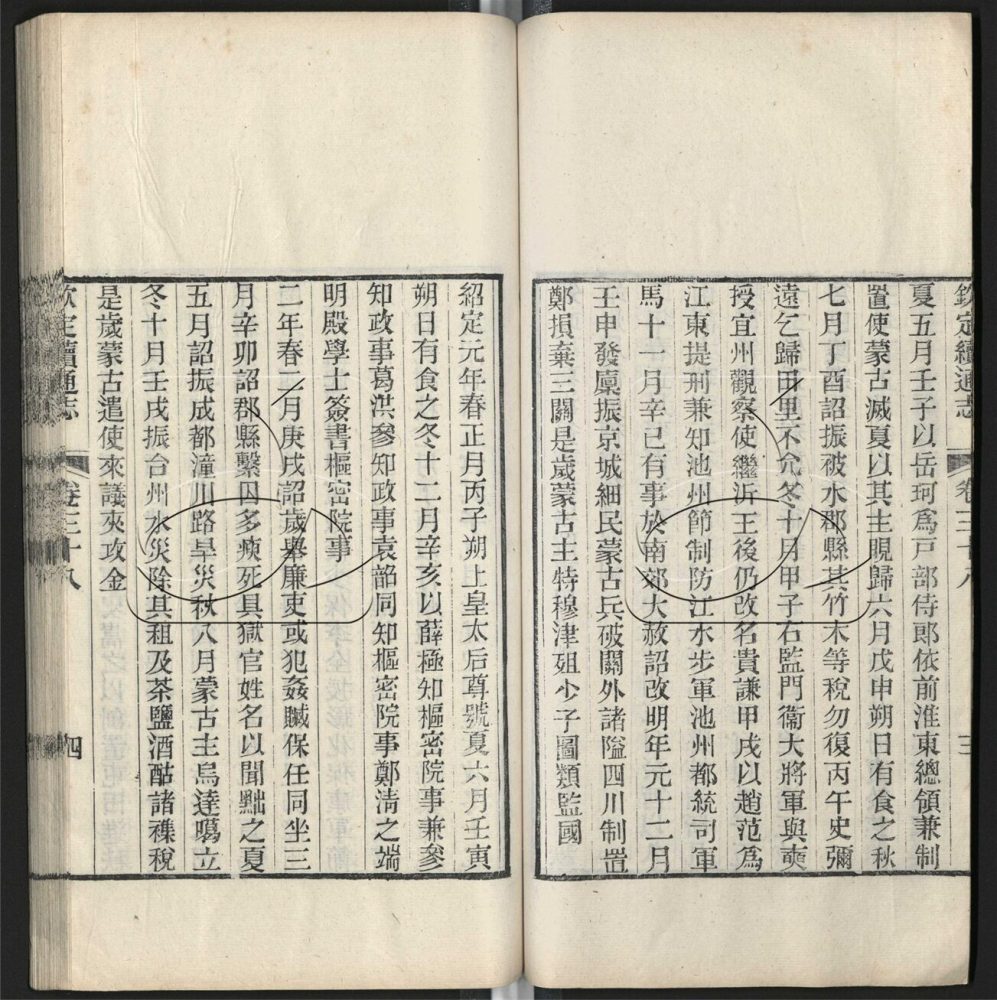 欽定續通志 卷三十八 三
夏五月壬子以岳珂爲戸部侍郎依前淮東總領兼制
置使蒙古滅夏以其主睍歸六月戊申朔日有食之秋
七月丁酉詔振被水郡縣其竹木等稅勿復丙午史彌
遠乞歸田里不允冬十月甲子右監門衞大將軍與奭
授宜州觀察使繼沂王後仍改名貴謙甲戌以趙范爲
江東提刑兼知池州節制防江水步軍池州都統司軍
馬十一月辛巳有事於南郊大赦詔改明年元十二月
壬申發廩振京城細民蒙古兵破關外諸隘四川制置
鄭損棄三關是歲蒙古主特穆津殂少子圖類監國
紹定元年春正月丙子朔上皇太后尊號夏六月壬寅
朔日有食之冬十二月辛亥以薛極知樞密院事兼參
知政事葛洪參知政事袁韶同知樞密院事鄭清之端
明殿學士簽書樞密院事
二年春二月庚戌詔歲舉廉吏或犯姦贓保任同坐三
月辛卯詔郡縣繫囚多瘐死具獄官姓名以聞黜之夏
五月詔振成都潼川路旱災秋八月蒙古主烏達噶立
冬十月壬戌振台州水災除其租及茶鹽酒酤諸襍稅
是歲蒙古遣使來議夾攻金
欽定續通志 卷三十八 四